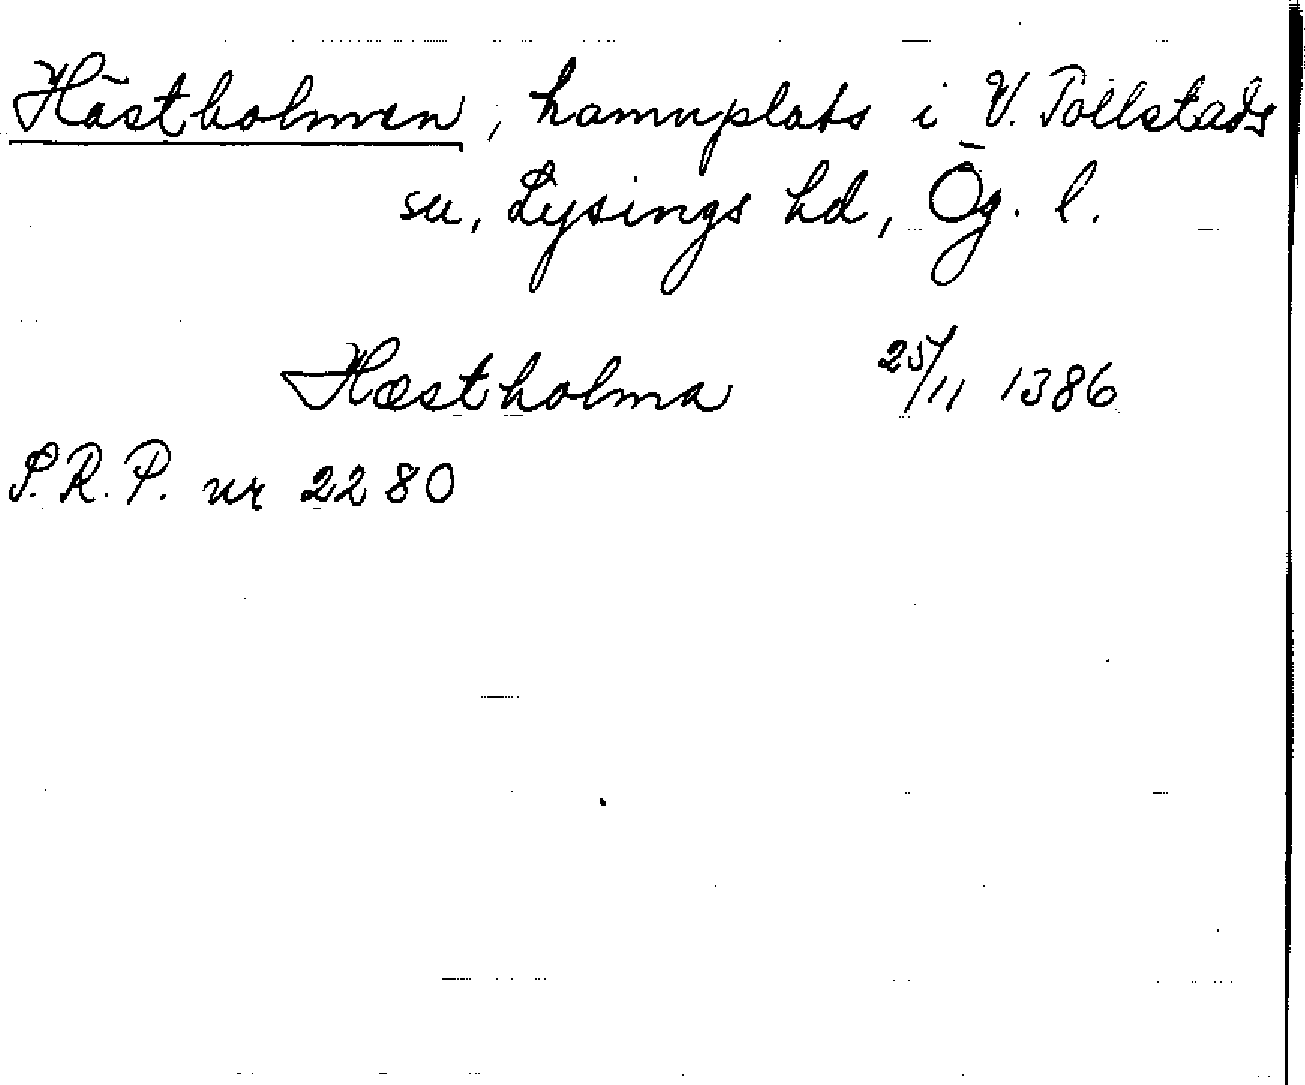 Hästholmen, hamnplats i V. Tollstads
sn, Lysings hd, Ög. l.
Hæstholma 25/11 1386
S.R.P. nr 2280